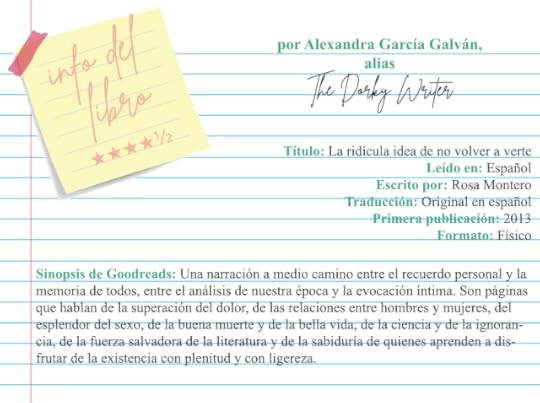 info del
libro
★★★★½
por Alexandra García Galván,
alias
The Dorky Writer
Título: La ridícula idea de no volver a verte
Leído en: Español
Escrito por: Rosa Montero
Traducción: Original en español
Primera publicación: 2013
Formato: Físico
Sinopsis de Goodreads: Una narración a medio camino entre el recuerdo personal y la
memoria de todos, entre el análisis de nuestra época y la evocación íntima. Son páginas
que hablan de la superación del dolor, de las relaciones entre hombres y mujeres, del
esplendor del sexo, de la buena muerte y de la bella vida, de la ciencia y de la ignoran-
cia, de la fuerza salvadora de la literatura y de la sabiduría de quienes aprenden a dis-
frutar de la existencia con plenitud y con ligereza.